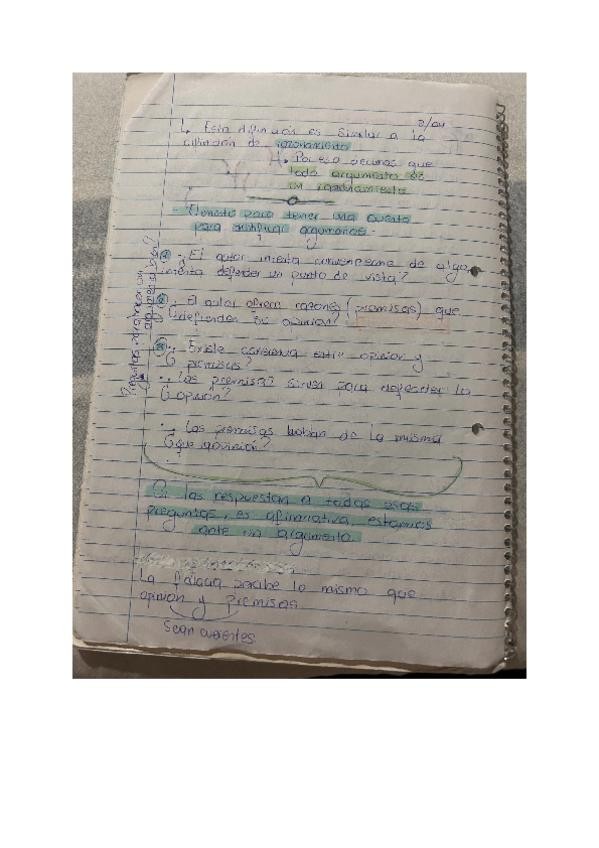 2/04
↳ Esta definición es similar a la
definición de razonamiento
↳ Por eso decimos que
todo argumento es
un razonamiento
Elementos para tener una cuenta
para argumentos.
① ¿El autor intenta convencerme de algo,
intenta defender un punto de vista?
② ¿El autor ofrece razones (premisas) que
defienden su opinión?
③ ¿Existe coherencia entre opinión y
premisas?
¿Las premisas sirven para defender la
opinión?
¿Las premisas hablan de lo mismo
que opinión?
Preguntas para un argumento
Si las respuestas a todas esas
preguntas, es afirmativa, estamos
ante un argumento.
La lo mismo que
opinión y premisas
Sean